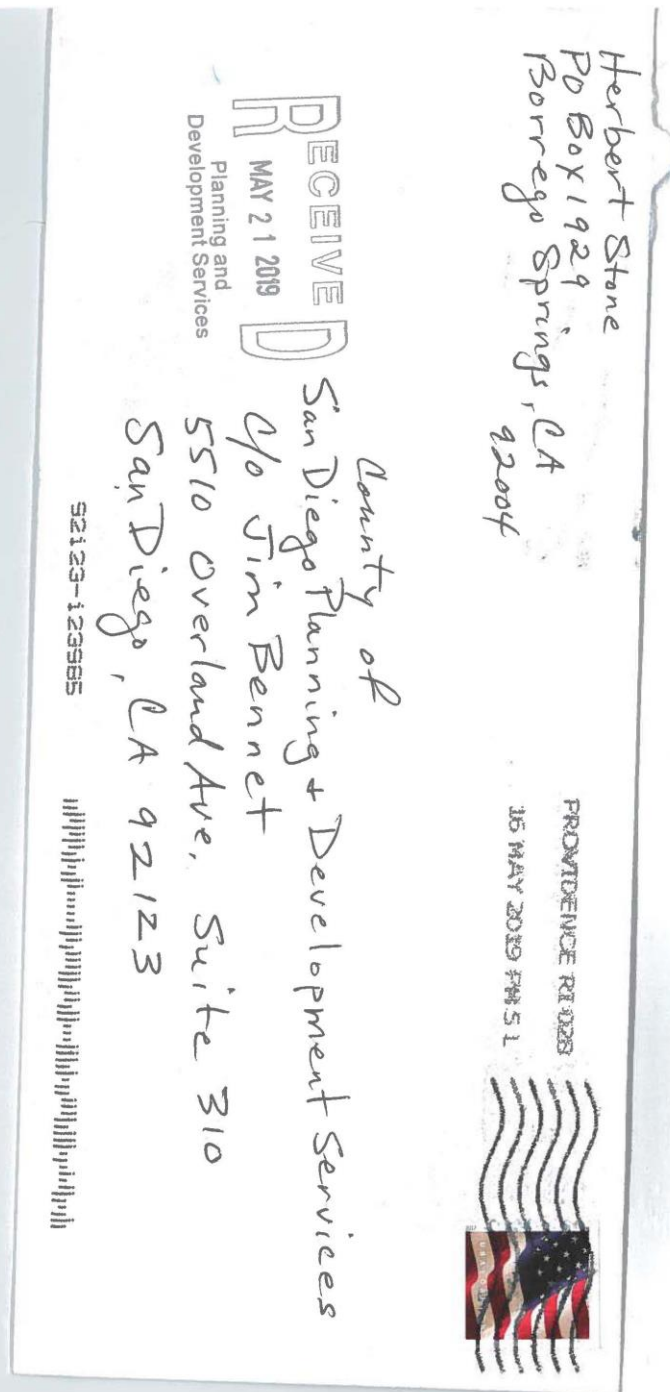 Herbert Stone
PO Box 1929
Borrego Springs, CA
92004
PROVIDENCE RI 028
16 MAY 2019 PM 5 L
RECEIVED
MAY 21 2019
Planning and
Development Services
County of
San Diego Planning + Development Services
c/o Jim Bennet
5510 Overland Ave. Suite 310
San Diego, CA 92123
92123-123985